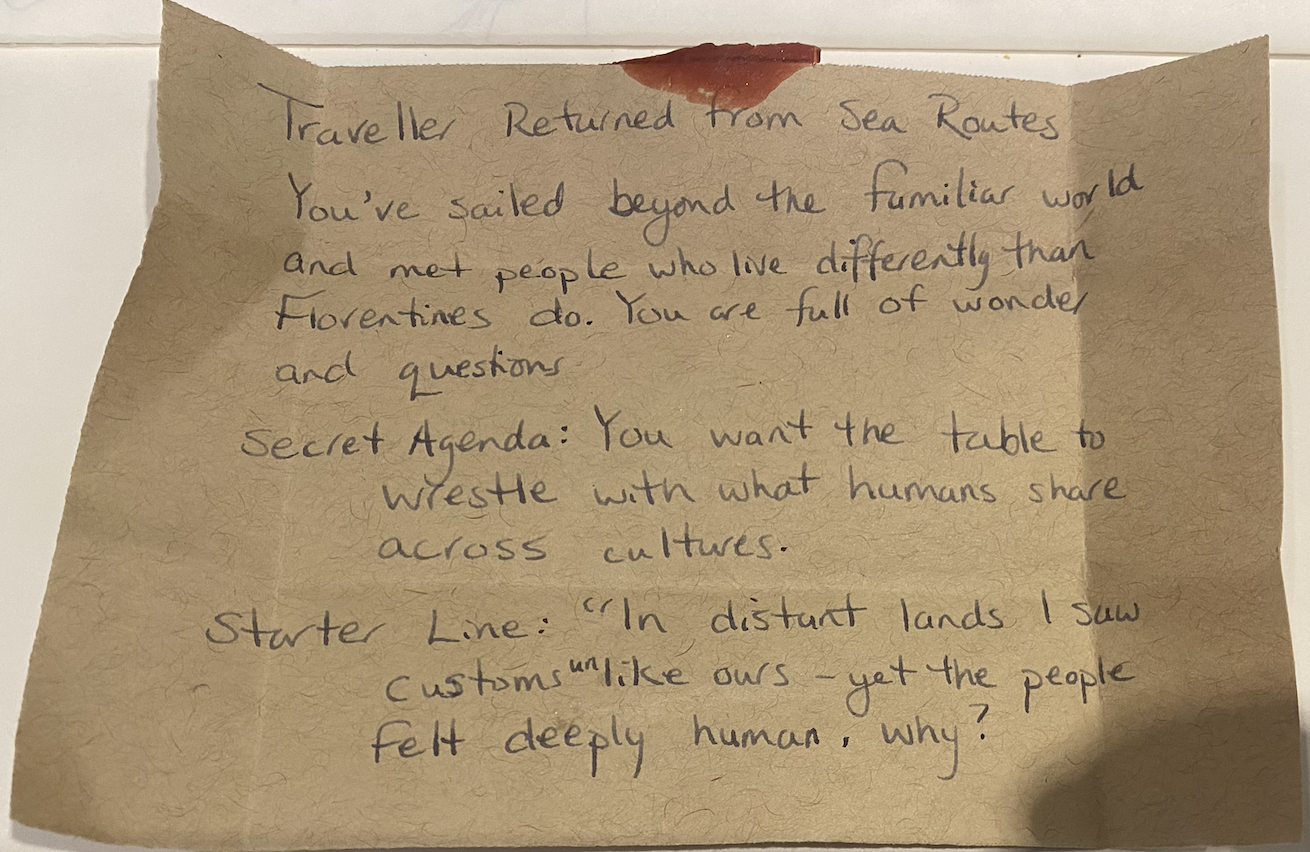 Traveller Returned from Sea Routes
You've sailed beyond the familiar world
and met people who live differently than
Florentines do. You are full of wonder
and questions
Secret Agenda: You want the table to
wrestle with what humans share
across cultures.
Starter Line: "In distant lands I saw
customs unlike ours - yet the people
felt deeply human. why?